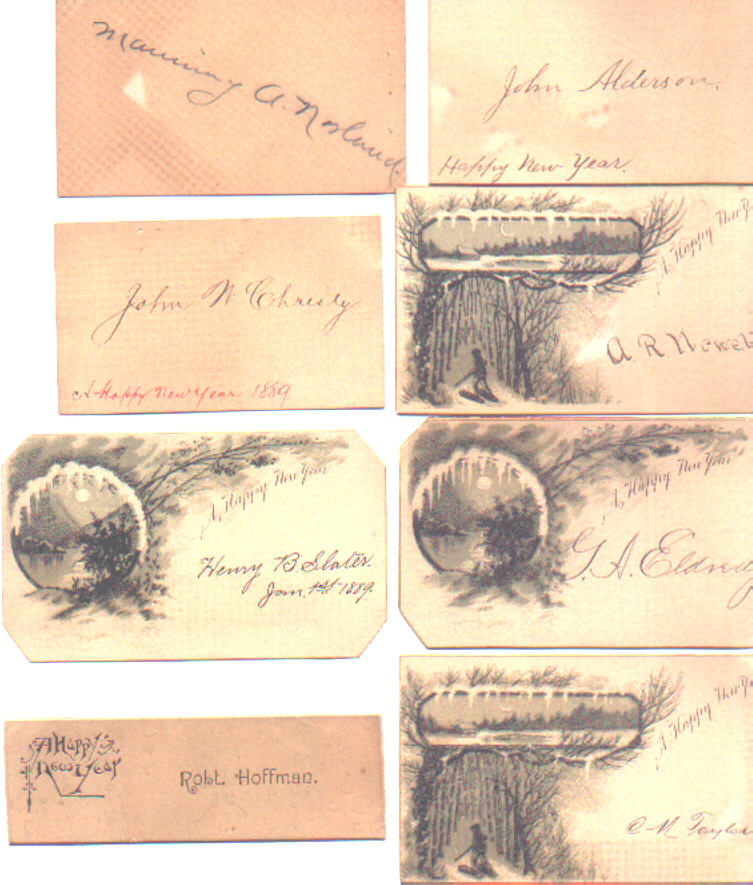 Manning A. Nosland.
John Alderson.
Happy New Year.
John W Chreily
A Happy New Year 1889
A Happy New Y
A. R. Noweb
A Happy New Year
Henry B Slater.
Jan. 1st 1889.
A Happy New Year
G. A. Eldredg
A Happy
New Year
Robt. Hoffman.
A Happy New Y
C M Taylor